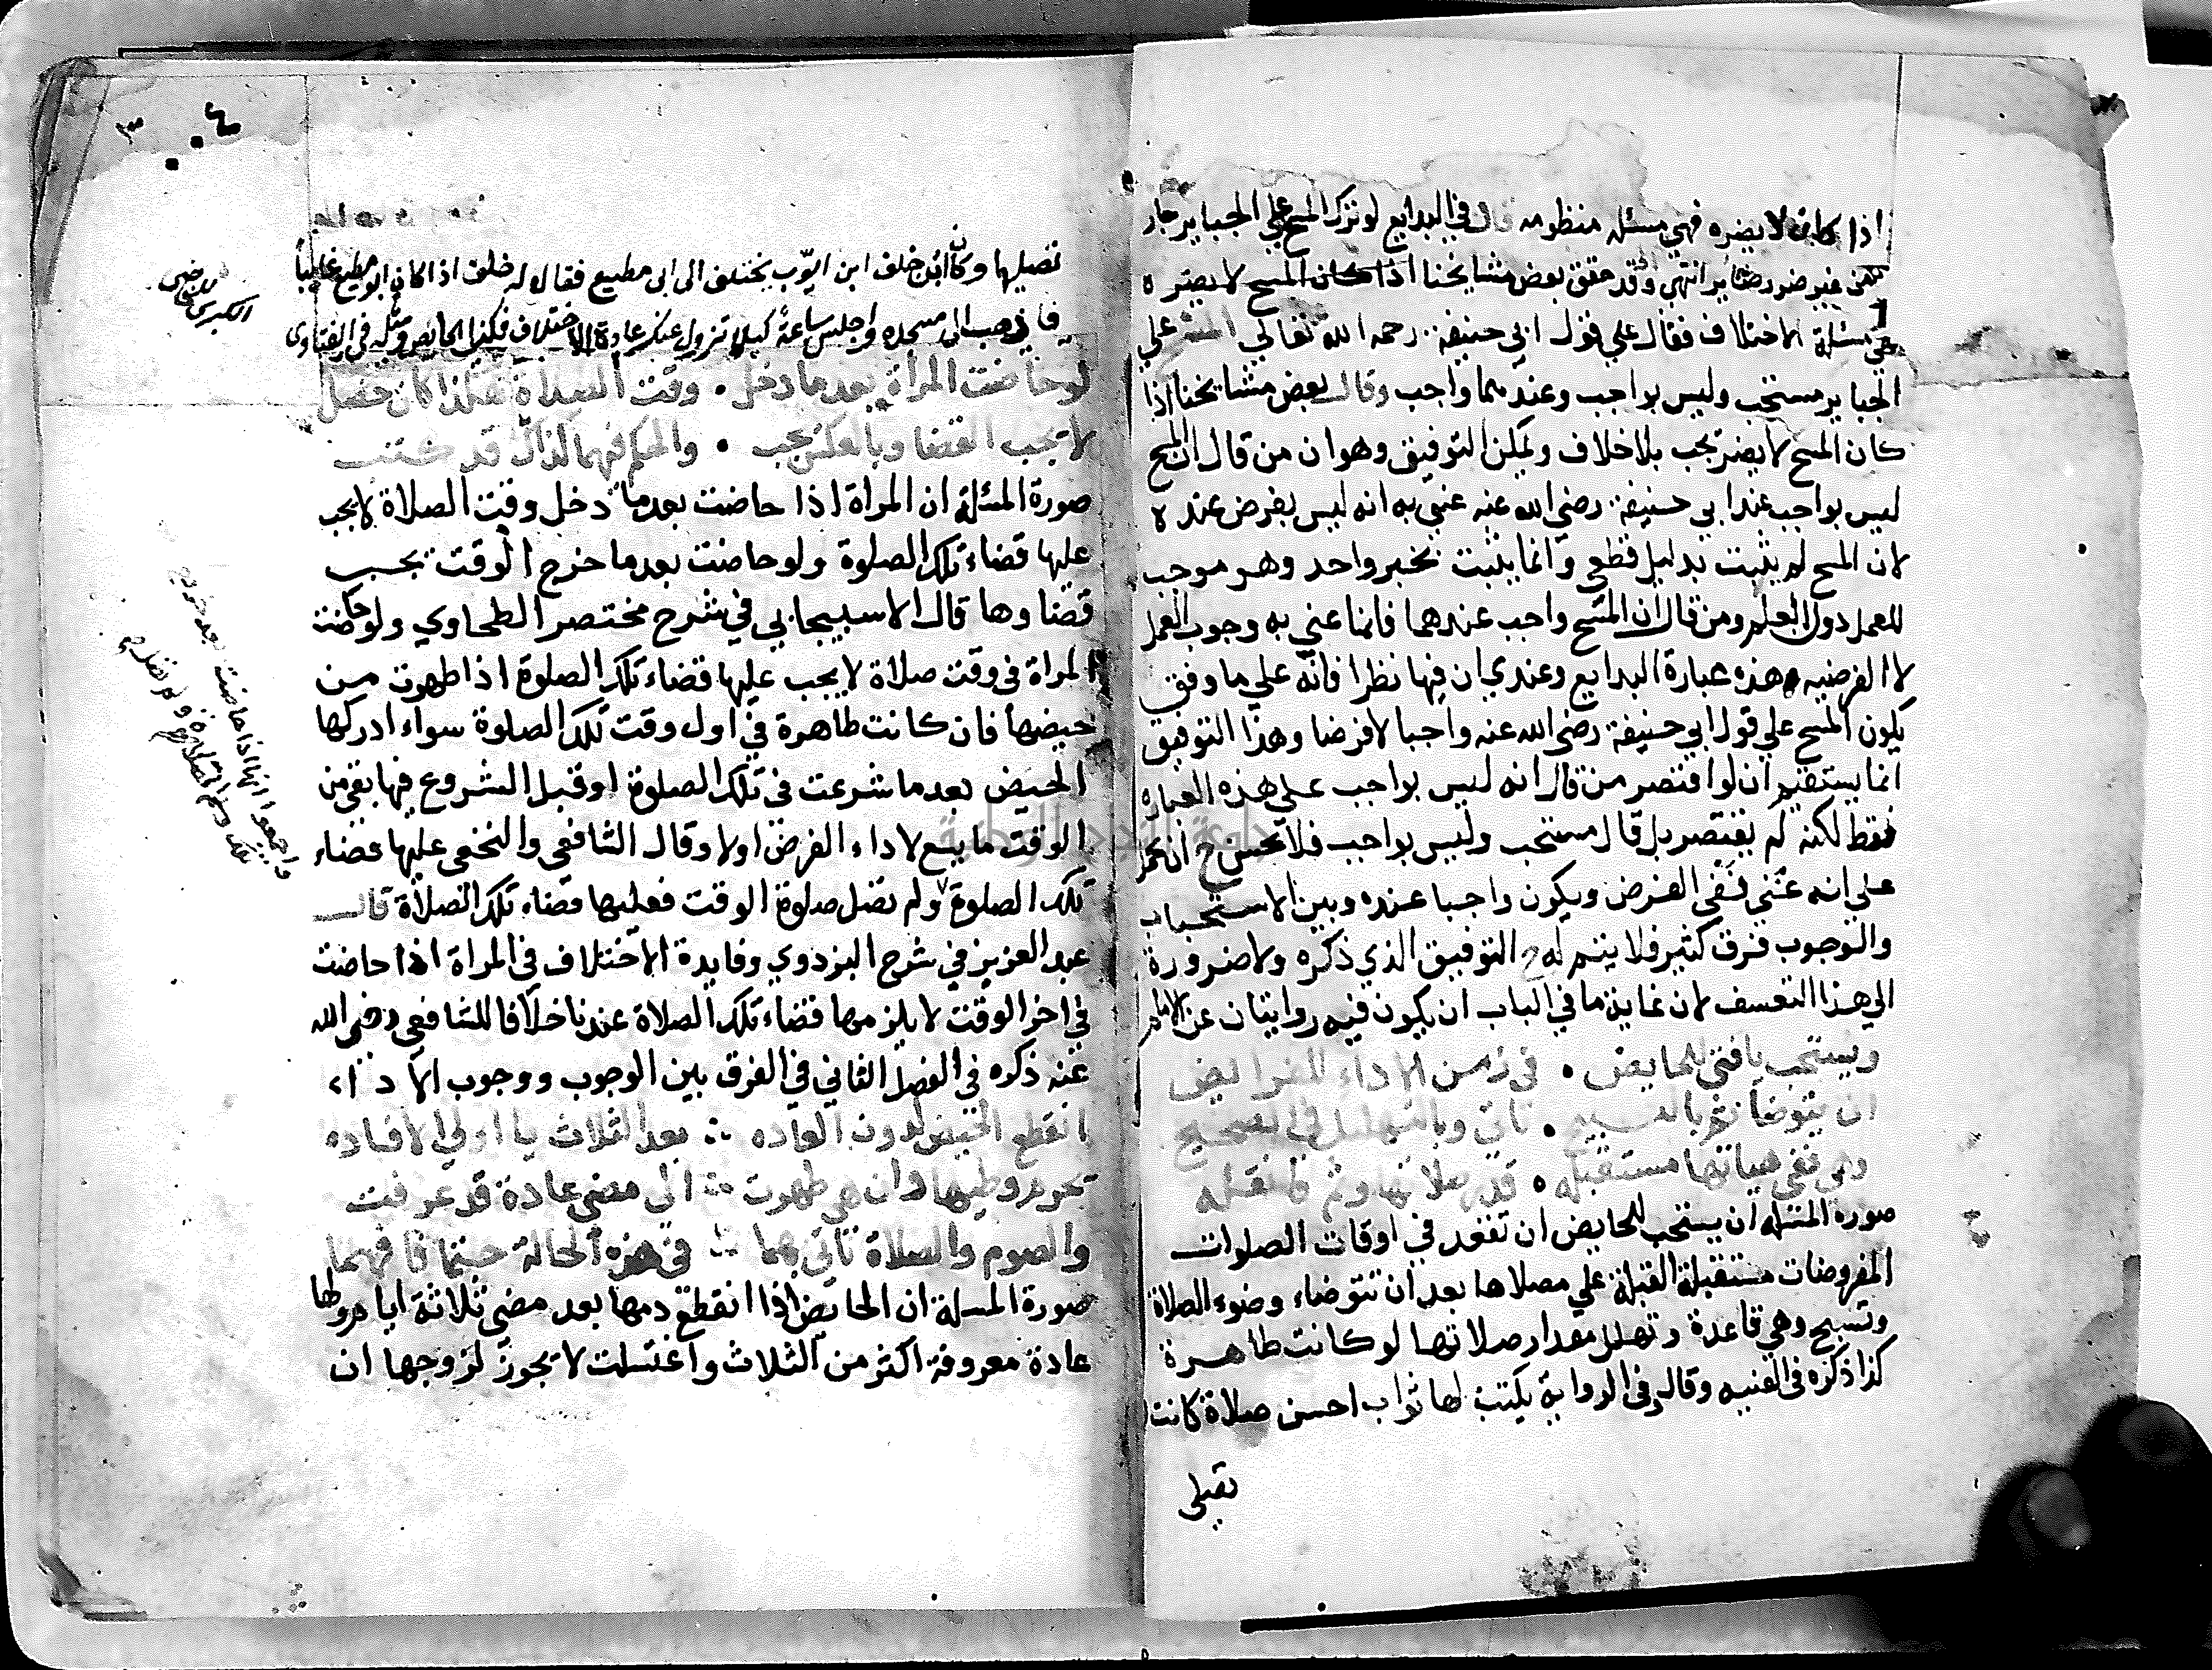 اذا كان لا يضره فهي مسئله منظومه قال في البدايع لو ترك المسح علي الجباير جاز
من غير ضرورة انتهي وقد حقق بعض مشايخنا اذا كان المسح لا يضره
هي مسئلة الاختلاف فقال علي قول ابي حنيفة رحمه الله تعالي المسح علي
الجباير مستحب وليس بواجب وعندهما واجب وقال بعض مشايخنا اذا
كان المسح لا يضر يجب بلا خلاف ويمكن التوفيق وهو ان من قال ان المسح
ليس بواجب عند ابي حنيفة رضي الله عنه عني به انه ليس بفرض عنده
لان المسح لم يثبت بدليل قطعي وانما يثبت بخبر واحد وهو موجب
للعمل دون العلم ومن قال ان المسح واجب عندهما فانما عني به وجوب العمل
لا الفرضيه وهذه عبارة البدايع وعندي ان فيها نظرا فانه علي ما وفق
يكون المسح علي قول ابي حنيفة رضي الله عنه واجبا لا فرضا وهذا التوفيق
انما يستقيم ان لو اقتصر من قال انه ليس بواجب علي هذه العباره
فقط لكنه لم يقتصر بل قال مستحب وليس بواجب فلا يحسن ح ان يحمل
علي انه عني نفي الفرض ويكون واجبا عنده وبين الاستحباب
والوجوب فرق كثير فلا يتم له ح التوفيق الذي ذكره ولا ضرورة
الي هذا التعسف لان غاية ما في الباب ان يكون فيه روايتان عن الامام
ويستحب يا فتي للحايض • في زمن الاداء للفرايض
ان تتوضا ثم بالتسبيح • تاتي وبالتهليل في الصحيح
وهي تفي هيئاتها مستقبله • قدر صلاتها
صورة المسئلة ان يستحب للحايض ان تقعد في اوقات الصلوات
المفروضات مستقبلة القبلة علي مصلاها بعد ان تتوضاء وضوء الصلاة
وتسبح وهي قاعدة وتهلل مقدار صلاتها لو كانت طاهرة
كذا ذكره في القنيه وقال وفي الرواية يكتب لها ثواب احسن صلاة كانت
تصلي
تصليها وكان ابن خلف ابن ايوب يختلف الى ابى مطيع فقال له خلف اذا كان ابو مطيع غايبا
فاذهب الى مسجده واجلس ساعة كيلا تزول عنك عادة الاختلاف فكذا الحايض ومثله في الفتاوى
الكبرى للخاصى
لو حاضت المرأة بعد ما دخل • وقت الصلاة هكذا كان حصل
لا يجب القضا وبالعكس يجب • والحكم فيهما كذاك قد كتب
صورة المسئلة ان المراة اذا حاضت بعد ما دخل وقت الصلاة لا يجب
عليها قضاء تلك الصلوة ولو حاضت بعد ما خرج الوقت يجب
قضاوها قال الاسبيجابي في شرح مختصر الطحاوي ولو حاضت
المراة فى وقت صلاة لا يجب عليها قضاء تلك الصلوة اذا طهرت من
حيضها فان كانت طاهرة في اول وقت تلك الصلوة سواء ادركها
الحيض بعد ما شرعت في تلك الصلوة او قبل الشروع فيها بقي من
الوقت ما يسع لاداء الفرض او لا وقال الشافعي والنخعي عليها قضاء
تلك الصلوة ولم تصل صلوة الوقت فعليها قضاء تلك الصلاة قال
عبد العزيز في شرح البزدوي وفايدة الاختلاف في المراة اذا حاضت
في اخر الوقت لا يلزمها قضاء تلك الصلاة عندنا خلافا للشافعي رضي الله
عنه ذكره في الفصل الثاني في الفرق بين الوجوب ووجوب الاداء
انقطع الحيض لدون العاده • بعد الثلاث يا اولي الافاده
يحرم وطيها وان هي طهرت • الى مضي عادة قد عرفت
والصوم والصلاة تاتي بهما • في هذه الحالة حتما فافهما
صورة المسلة ان الحائض اذا انقطع دمها بعد مضي ثلاثة ايام ولها
عادة معروفة اكثر من الثلاث واغتسلت لا يجوز لزوجها ان